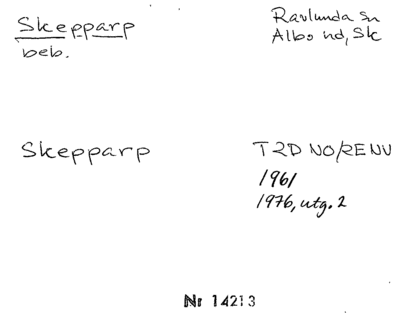 Skepparp
beb.
Ravlunda sn
Albo hd, Sk
Skepparp
T 2D NO/RENV
1961
1976, utg. 2
Nr 14213